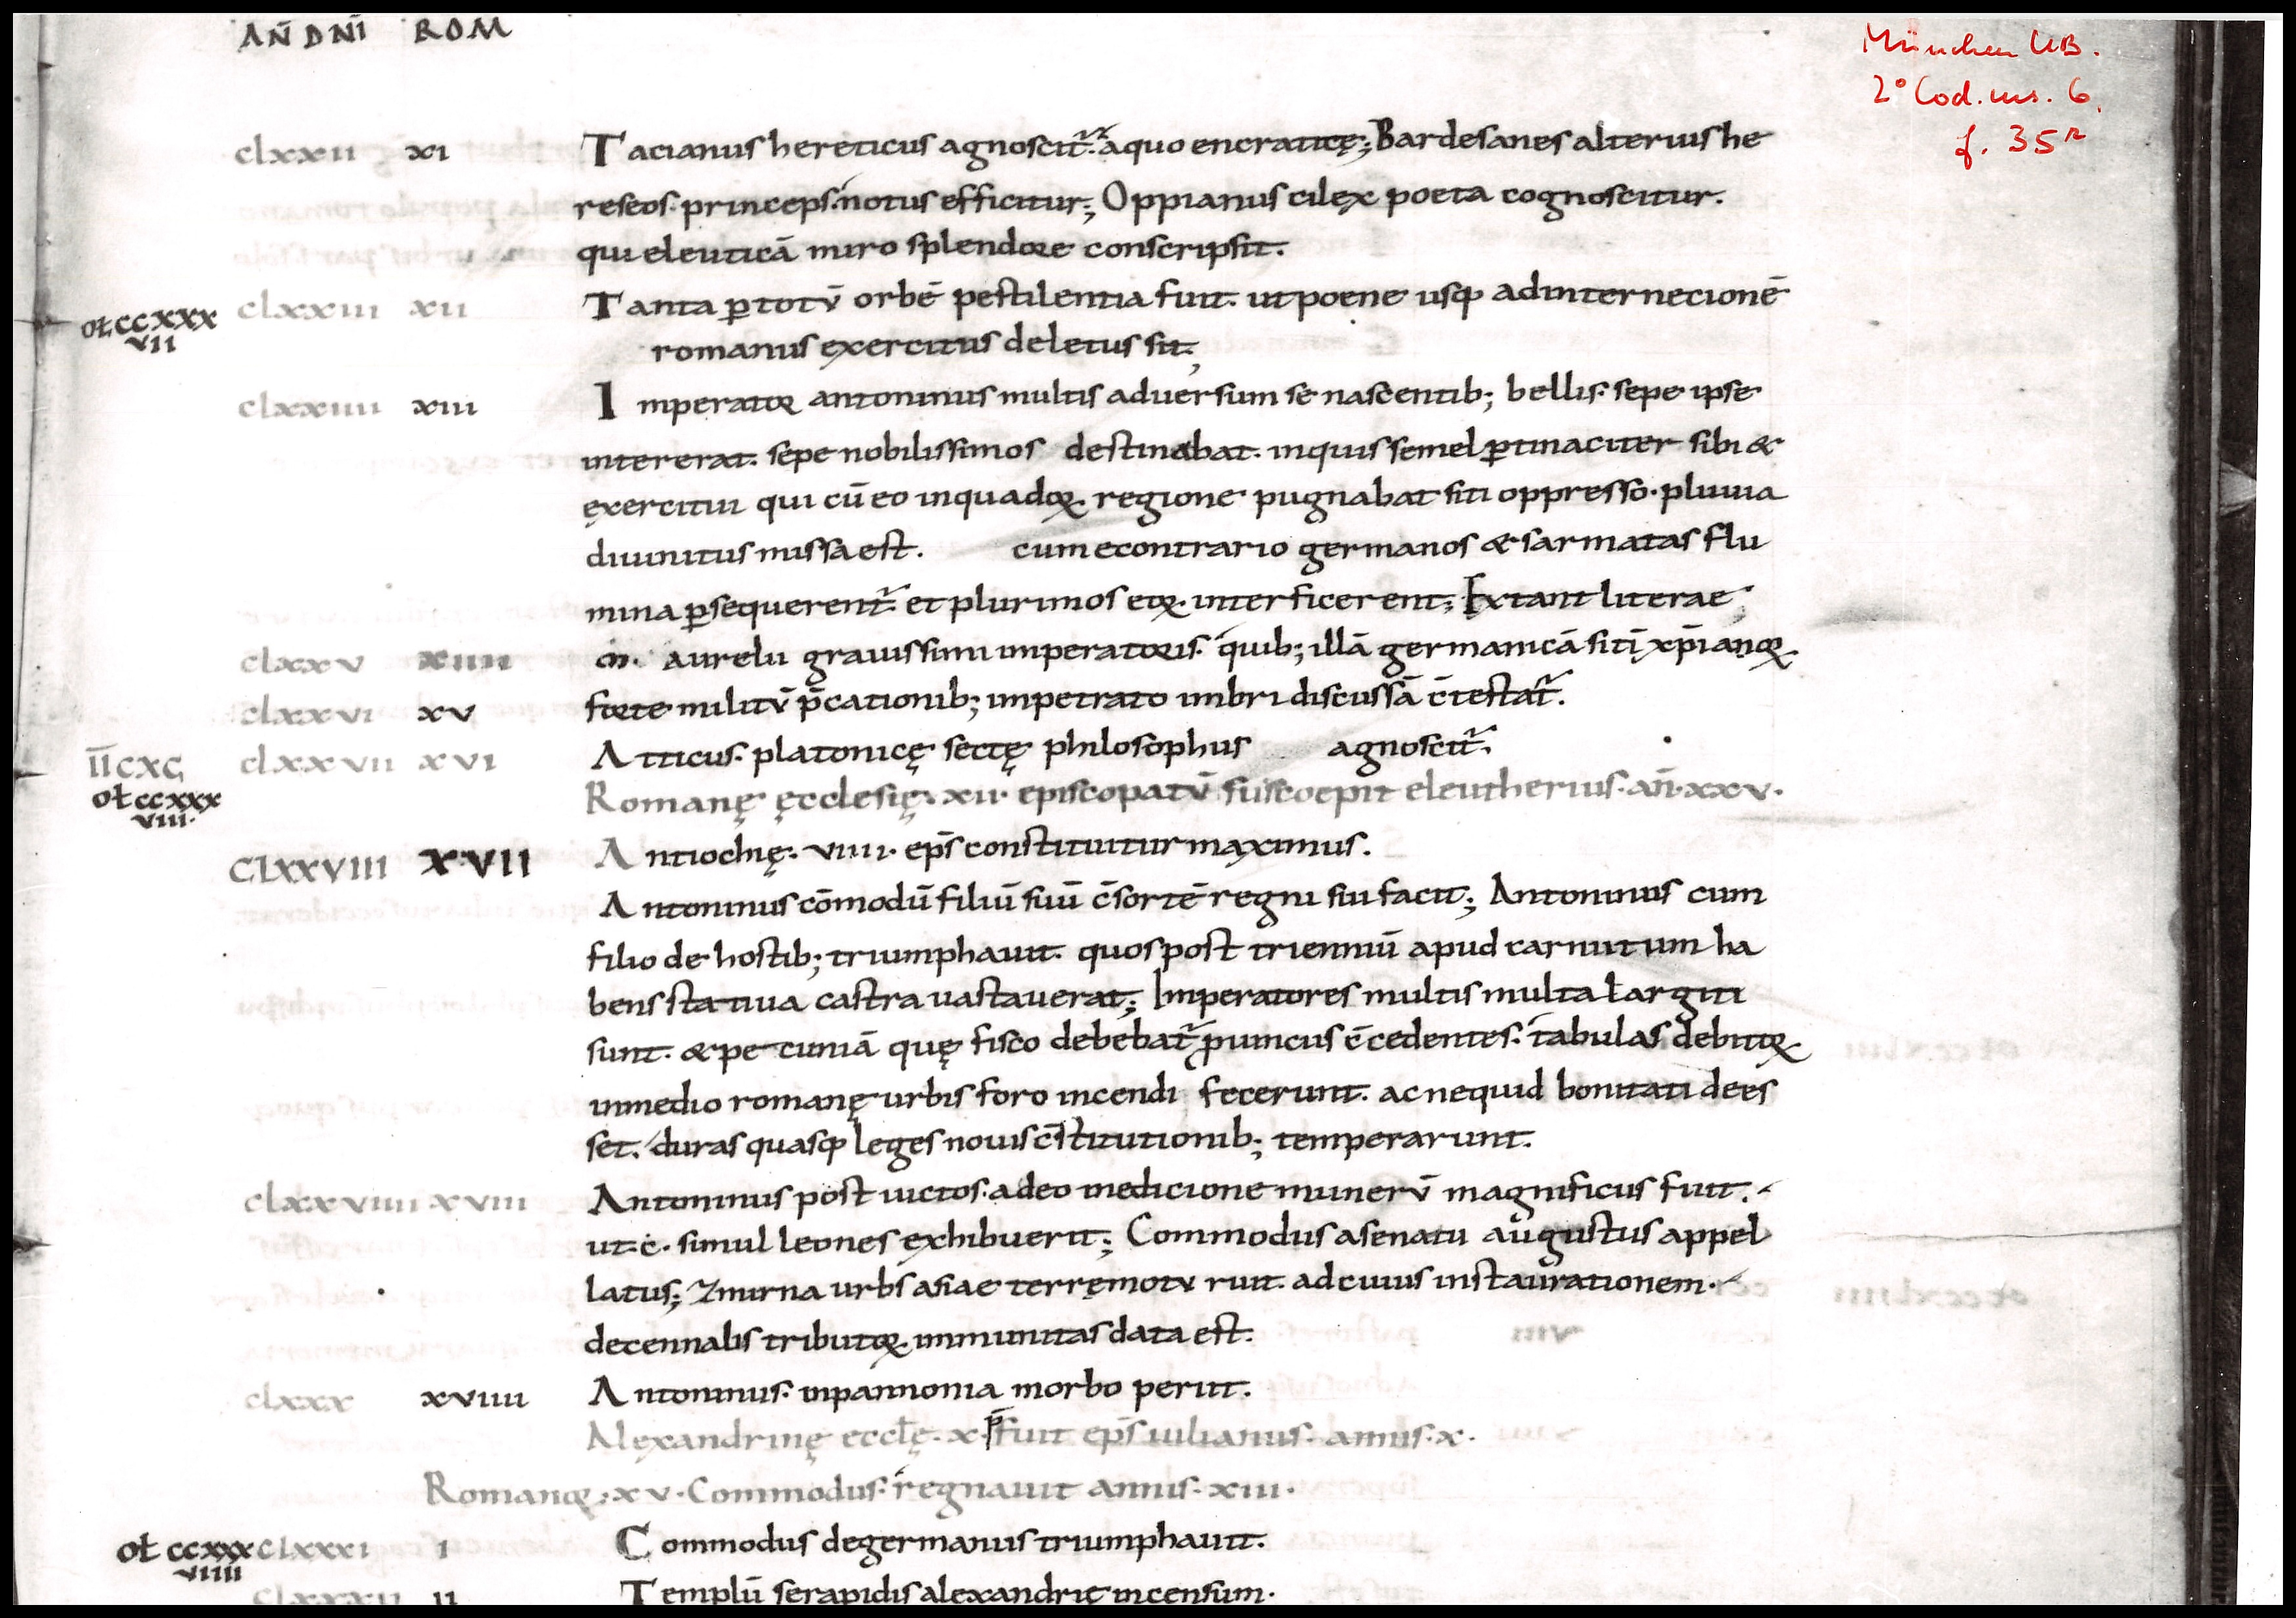 AN̄ DNĪ ROM
München UB.
2° Cod. ms. 6,
f. 35r
clxxii xi Tacianus hereticus agnoscit᷑. a quo encraticę; Bardesanes alterius he
reseos. princeps. notus efficitur; Oppianus cilex poeta cognoscitur.
qui eleuticā miro splendore conscripsit.
clxxiii xii Tanta ꝑ totū orbē pestilentia fuit. ut poene usq; ad internecionē
oł ccxxx
vii
romanus exercitus deletus sit;
clxxiiii xiii Imperator antoninus multis aduersum se nascentib; bellis. sepe ipse
intererat. sepe nobilissimos destinabat. in quis semel ꝑtinaciter sibi &
exercitui qui cū eo in quadoꝝ regione pugnabat siti oppresso. pluuia
diuinitus missa est. cum econtrario germanos & sarmatas flu
mina ꝑsequerent᷑. et plurimos eoꝝ interficerent; Extant literae
clxxv xiiii m. aurelii grauissimi imperatoris. quib; illā germanicā sitī xp̄ianoꝝ
clxxvi xv forte militū p̄cationib; impetrato imbri discussā c̄testat᷑.
clxxvii xvi Atticus. platonicę sectę philosophus agnoscit᷑.
īīcxc
oł ccxxx
viii.
Romanę ęcclesię. xii. episcopatū suscoepit eleutherius. an̄. xxv.
CLXXVIII XVII Antiochię. viiii. ep̄s constituitur maximus.
Antoninus cōmodū filiū suū c̄sortē regni sui facit; Antoninus cum
filio de hostib; triumphauit. quos post trienniū apud carnutum ha
bens statiua castra uastauerat; Imperatores multis multa largiti
sunt. & pecuniā quę fisco debebat᷑ ꝓuincus c̄cedentes. tabulas debitoꝝ
in medio romanę urbis foro incendi fecerunt. ac nequid bonitati dees
set. duras quasq; leges nouis c̄stitutionib; temperarunt.
clxxviiii xviii Antoninus post uictos. adeo in edicione munerū magnificus fuit.
ut. c. simul leones exhibuerit; Commodus a senatu augustus appel
latus; Zmirna urbs asiae terręmotu ruit. ad cuius instaurationem.
decennalis tributoꝝ immunitas data est.
clxxx xviiii Antoninus. in pannonia morbo periit.
Alexandrinę eccłę. x. p̄fuit ep̄s iulianus. annis. x.
Romanoꝝ. xv. Commodus. regnauit annis. xiii.
oł ccxxx
viiii
clxxxi i Commodus de germanis triumphauit.
clxxxii ii Templū serapidis alexandrię incensum.